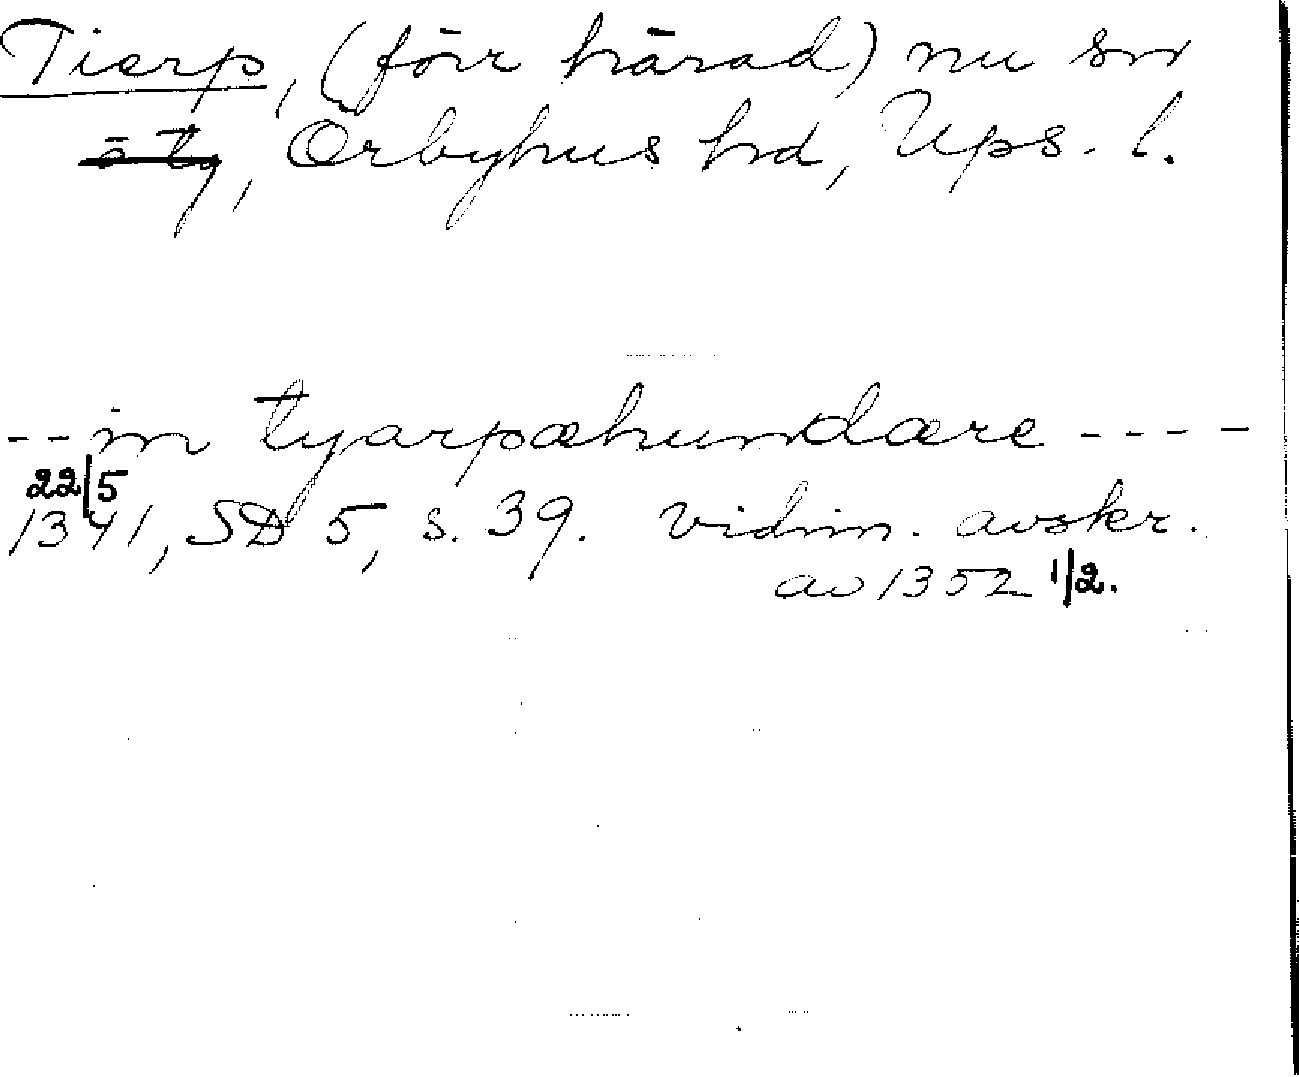 Tierp, (förr härad) nu sn
o ty, Örbyhus hd, Ups. l.
-- in tyarpæhundære ----
22/5
1341, SD 5, s. 39. vidim. avskr.
av 1352 1/2.